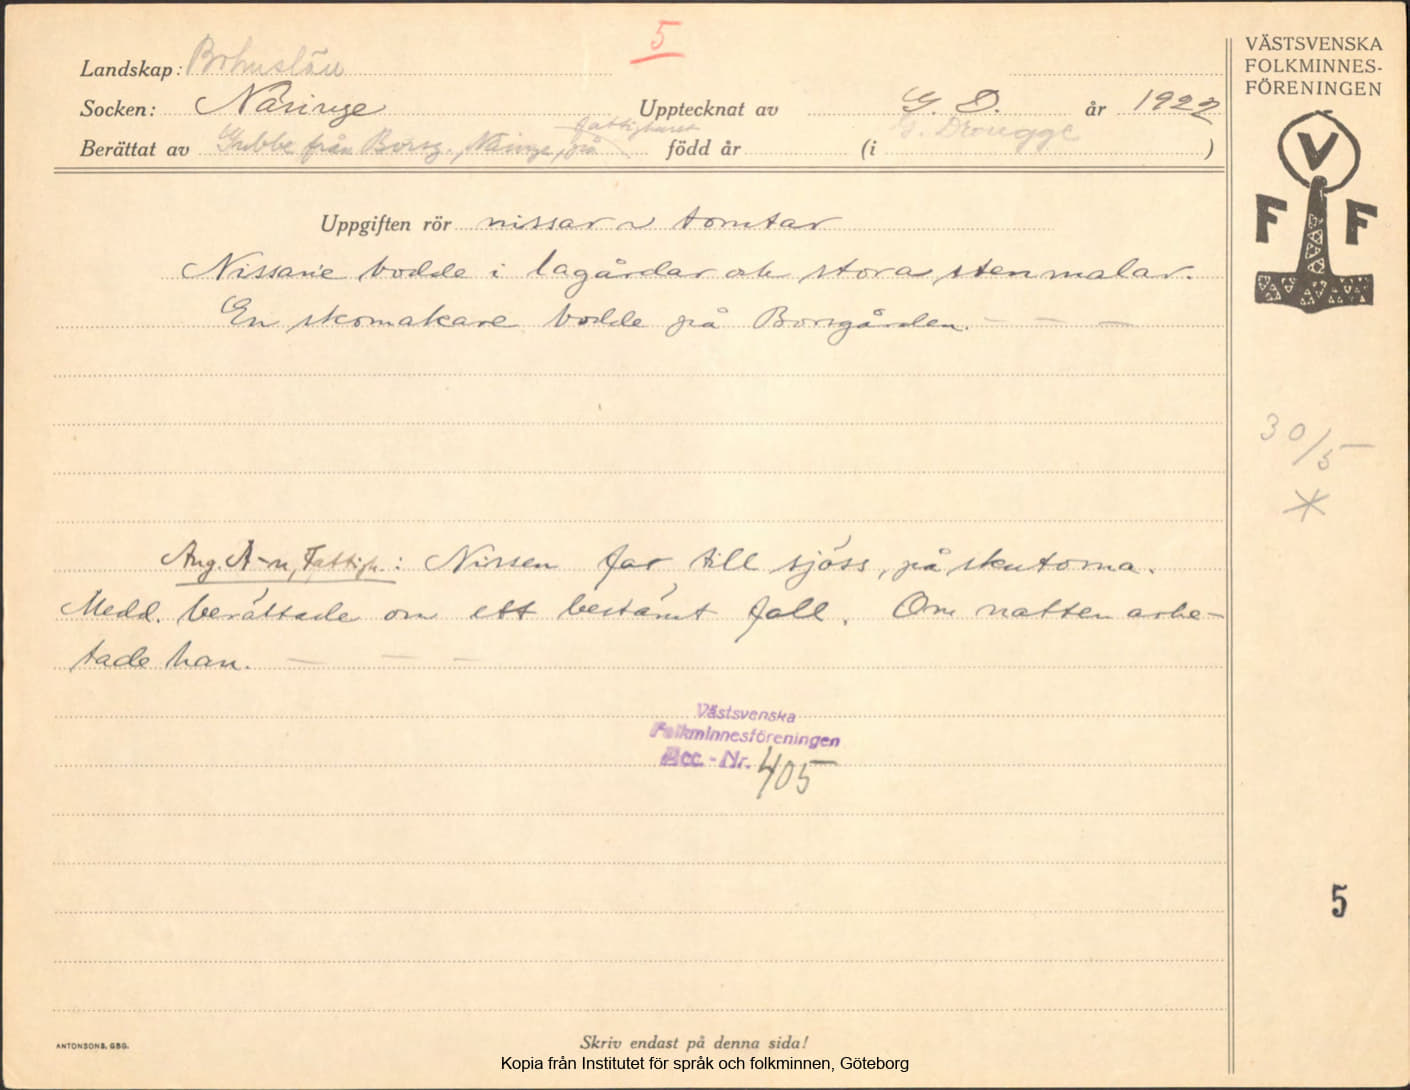 5
Landskap: Bohuslän
Socken: Näsinge Upptecknat av G. D. år 1922
G. Drougge
fattighuset
Berättat av Gubbe från Borsg., Näsinge, på född år (i )
Uppgiften rör nissar o tomtar
Nissarne bodde i lagårdar och stora stenmalar.
En skomakare bodde på Borsgården. — — —
Aug. A-n, Fattigh.: Nissen far till sjöss, på skutorna.
Medd. berättade om ett bestämt fall. Om natten arbe-
tade han. — — —
Västsvenska
Folkminnesföreningen
Acc.-Nr. 405
ANTONSONS, GBG.
Skriv endast på denna sida!
Kopia från Institutet för språk och folkminnen, Göteborg
VÄSTSVENSKA
FOLKMINNES-
FÖRENINGEN
V
F F
30/5
5